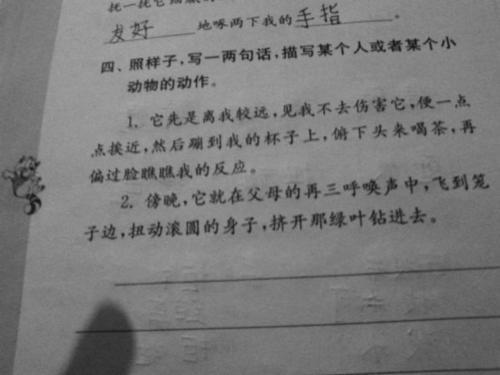 抚一抚它细腻的
友好 地啄两下我的 手指 。
四、照样子，写一两句话，描写某个人或者某个小
动物的动作。
1. 它先是离我较远，见我不去伤害它，便一点
点挨近，然后蹦到我的杯子上，俯下头来喝茶，再
偏过脸瞧瞧我的反应。
2. 傍晚，它就在父母的再三呼唤声中，飞到笼
子边，扭动滚圆的身子，挤开那绿叶钻进去。